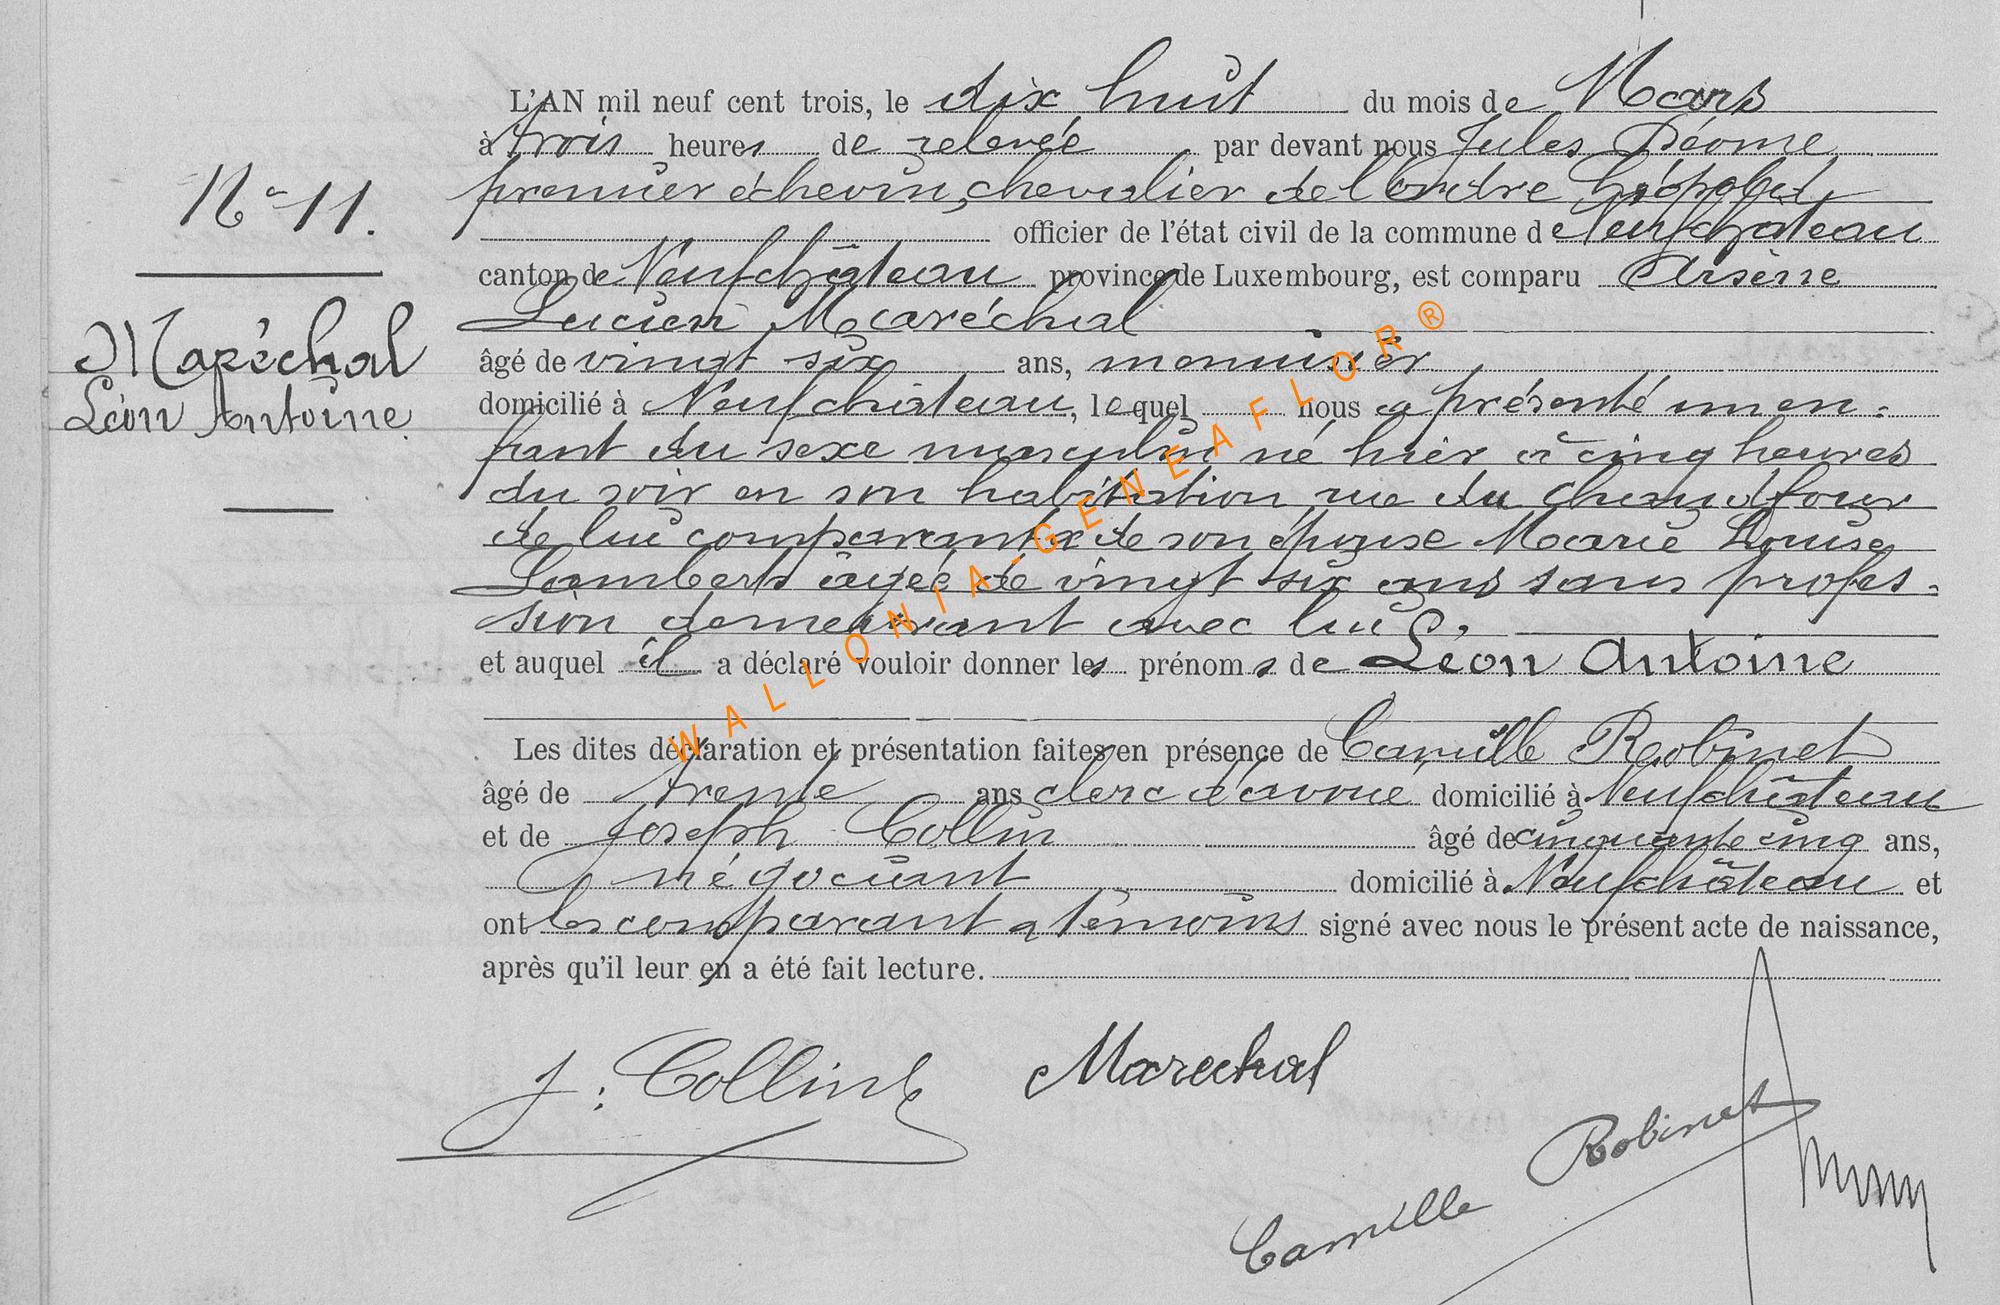 L'AN mil neuf cent trois, le dix huit du mois de Mars
à trois heures de relevée par devant nous Jules Déome
premier échevin, chevalier de l'ordre Léopold,
officier de l'état civil de la commune de Neufchâteau
canton de Neufchâteau province de Luxembourg, est comparu Arsène
Lucien Maréchal
âgé de vingt six ans, menuisier
domicilié à Neufchâteau, lequel nous a présenté un en-
fant du sexe masculin né hier à cinq heures
du soir en son habitation rue du Chaudfour
de lui comparant & de son épouse Marie Louise
Lambert âgée de vingt six ans sans profes-
sion demeurant avec lui,
et auquel il a déclaré vouloir donner les prénoms de Léon Antoine
Les dites déclaration et présentation faites en présence de Camille Robinet
âgé de trente ans clerc d'avoué domicilié à Neufchâteau
et de Joseph Collin âgé de cinquante cinq ans,
négociant domicilié à Neufchâteau et
ont les comparant & témoins signé avec nous le présent acte de naissance,
après qu'il leur en a été fait lecture.
N° 11.
Maréchal
Léon Antoine
WALLONIA-GENEAFLOR®
J. Collin
Marechal
Camille Robinet